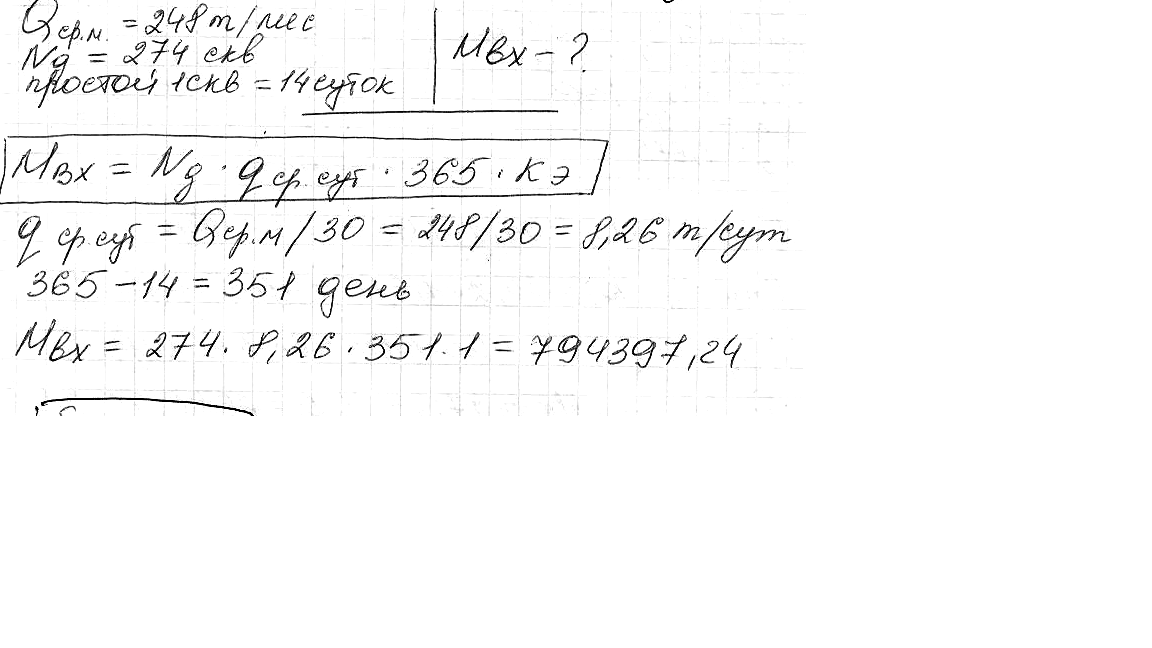 Qср.м. = 248 т/мес
Nд = 274 скв
простой 1 скв = 14 суток
Мвх - ?
Мвх = Nд · qср.сут · 365 · Кэ
qср.сут = Qср.м / 30 = 248/30 = 8,26 т/сут
365 - 14 = 351 день
Мвх = 274 · 8,26 · 351 · 1 = 794397,24